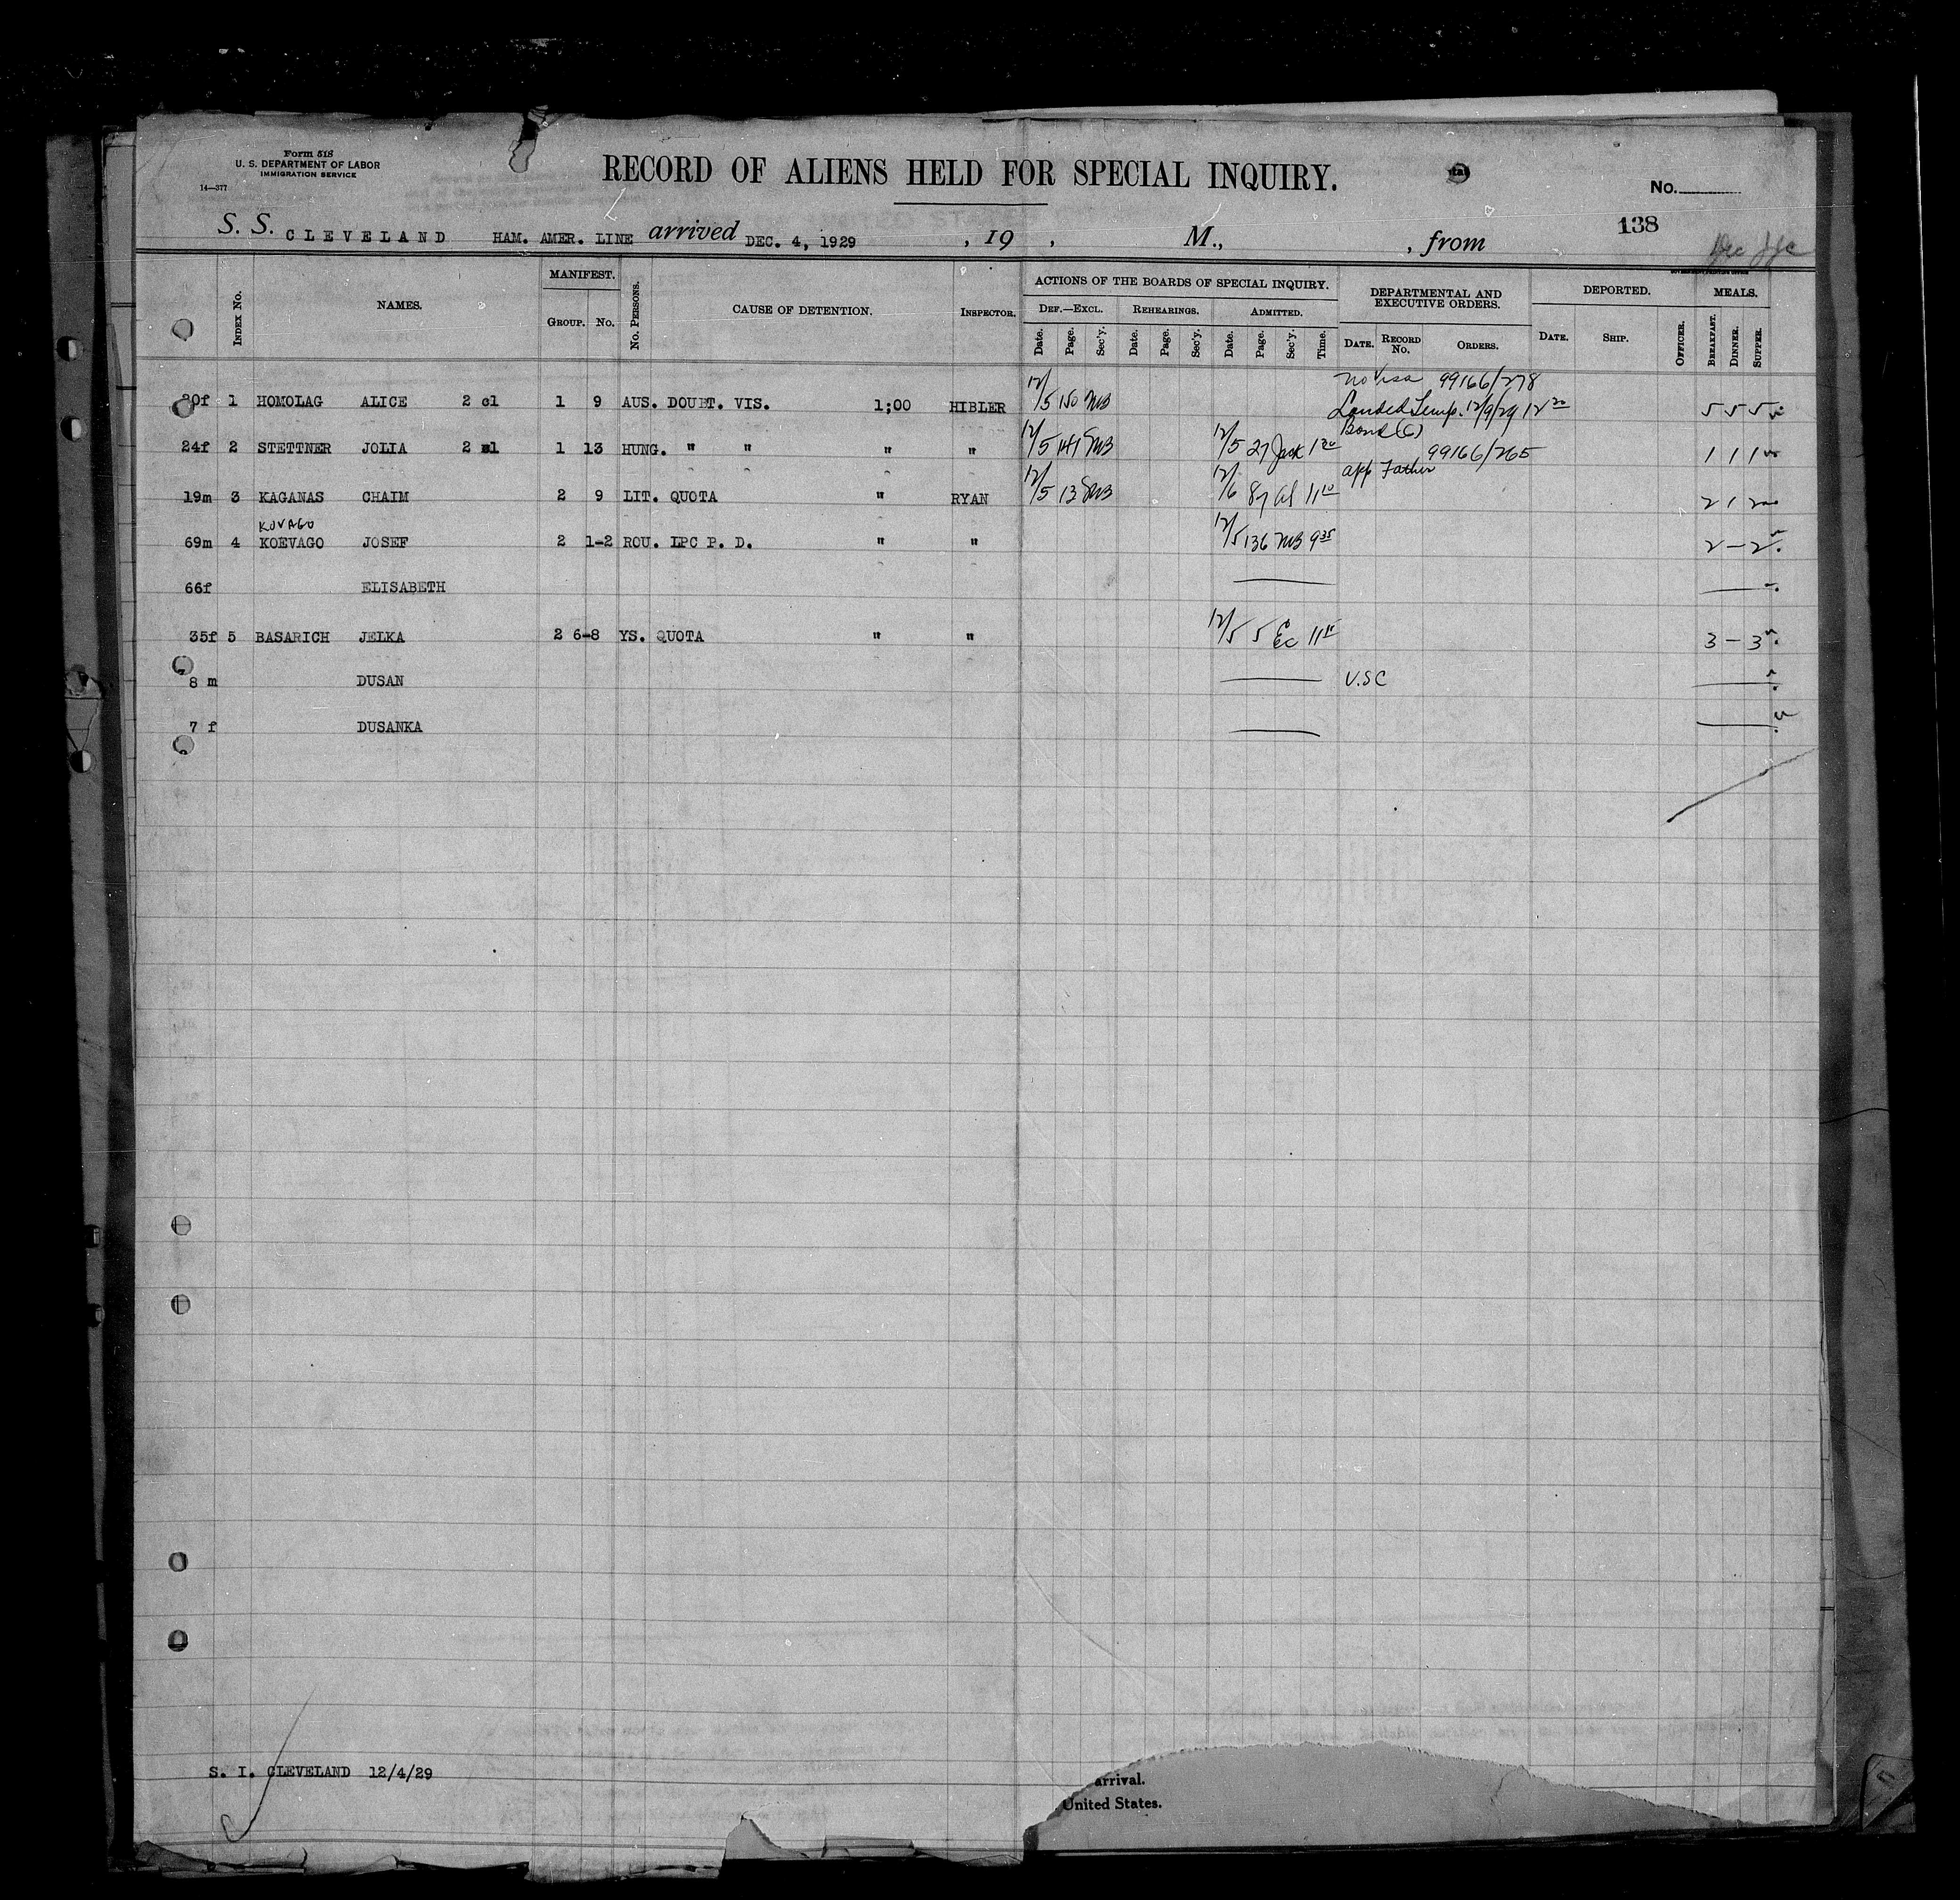 Form 518
U. S. DEPARTMENT OF LABOR
IMMIGRATION SERVICE
14—377
RECORD OF ALIENS HELD FOR SPECIAL INQUIRY.
No.
138
S. S. CLEVELAND HAM. AMER. LINE arrived DEC. 4, 1929 , 19 , M., , from
INDEX NO. NAMES. MANIFEST. GROUP. NO. NO. PERSONS. CAUSE OF DETENTION. INSPECTOR. ACTIONS OF THE BOARDS OF SPECIAL INQUIRY. DEPARTMENTAL AND EXECUTIVE ORDERS. DEPORTED. MEALS.
DEF.—EXCL. REHEARINGS. ADMITTED.
Date. Page. Sec'y. Date. Page. Sec'y. Date. Page. Sec'y. Time. DATE. RECORD No. ORDERS. DATE. SHIP. OFFICER. BREAKFAST. DINNER. SUPPER.
no Visa 99166/278
30f 1 HOMOLAG ALICE 2 cl 1 9 AUS. DOUBT. VIS. 1;00 HIBLER 12/5 150 MB Landed Temp. 12/9/29 12 20 5 5 5
Bond (6)
24f 2 STETTNER JOLIA 2 cl 1 13 HUNG. " " " " 12/5 141 SMB 12/5 27 Jack 1 20 99166/265 1 1 1
app Father
19m 3 KAGANAS CHAIM 2 9 LIT. QUOTA " RYAN 12/5 13 SMB 12/6 87 11 10 2 1 2
KOVAGO
69m 4 KOEVAGO JOSEF 2 1-2 ROU. LPC P. D. " " 12/5 136 MB 9 35 2 — 2
66f ELISABETH
35f 5 BASARICH JELKA 2 6-8 YS. QUOTA " " 12/5 5 EC 11 15 3 — 3
8 m DUSAN U.S.C
7 f DUSANKA
S. I. CLEVELAND 12/4/29
arrival.
United States.